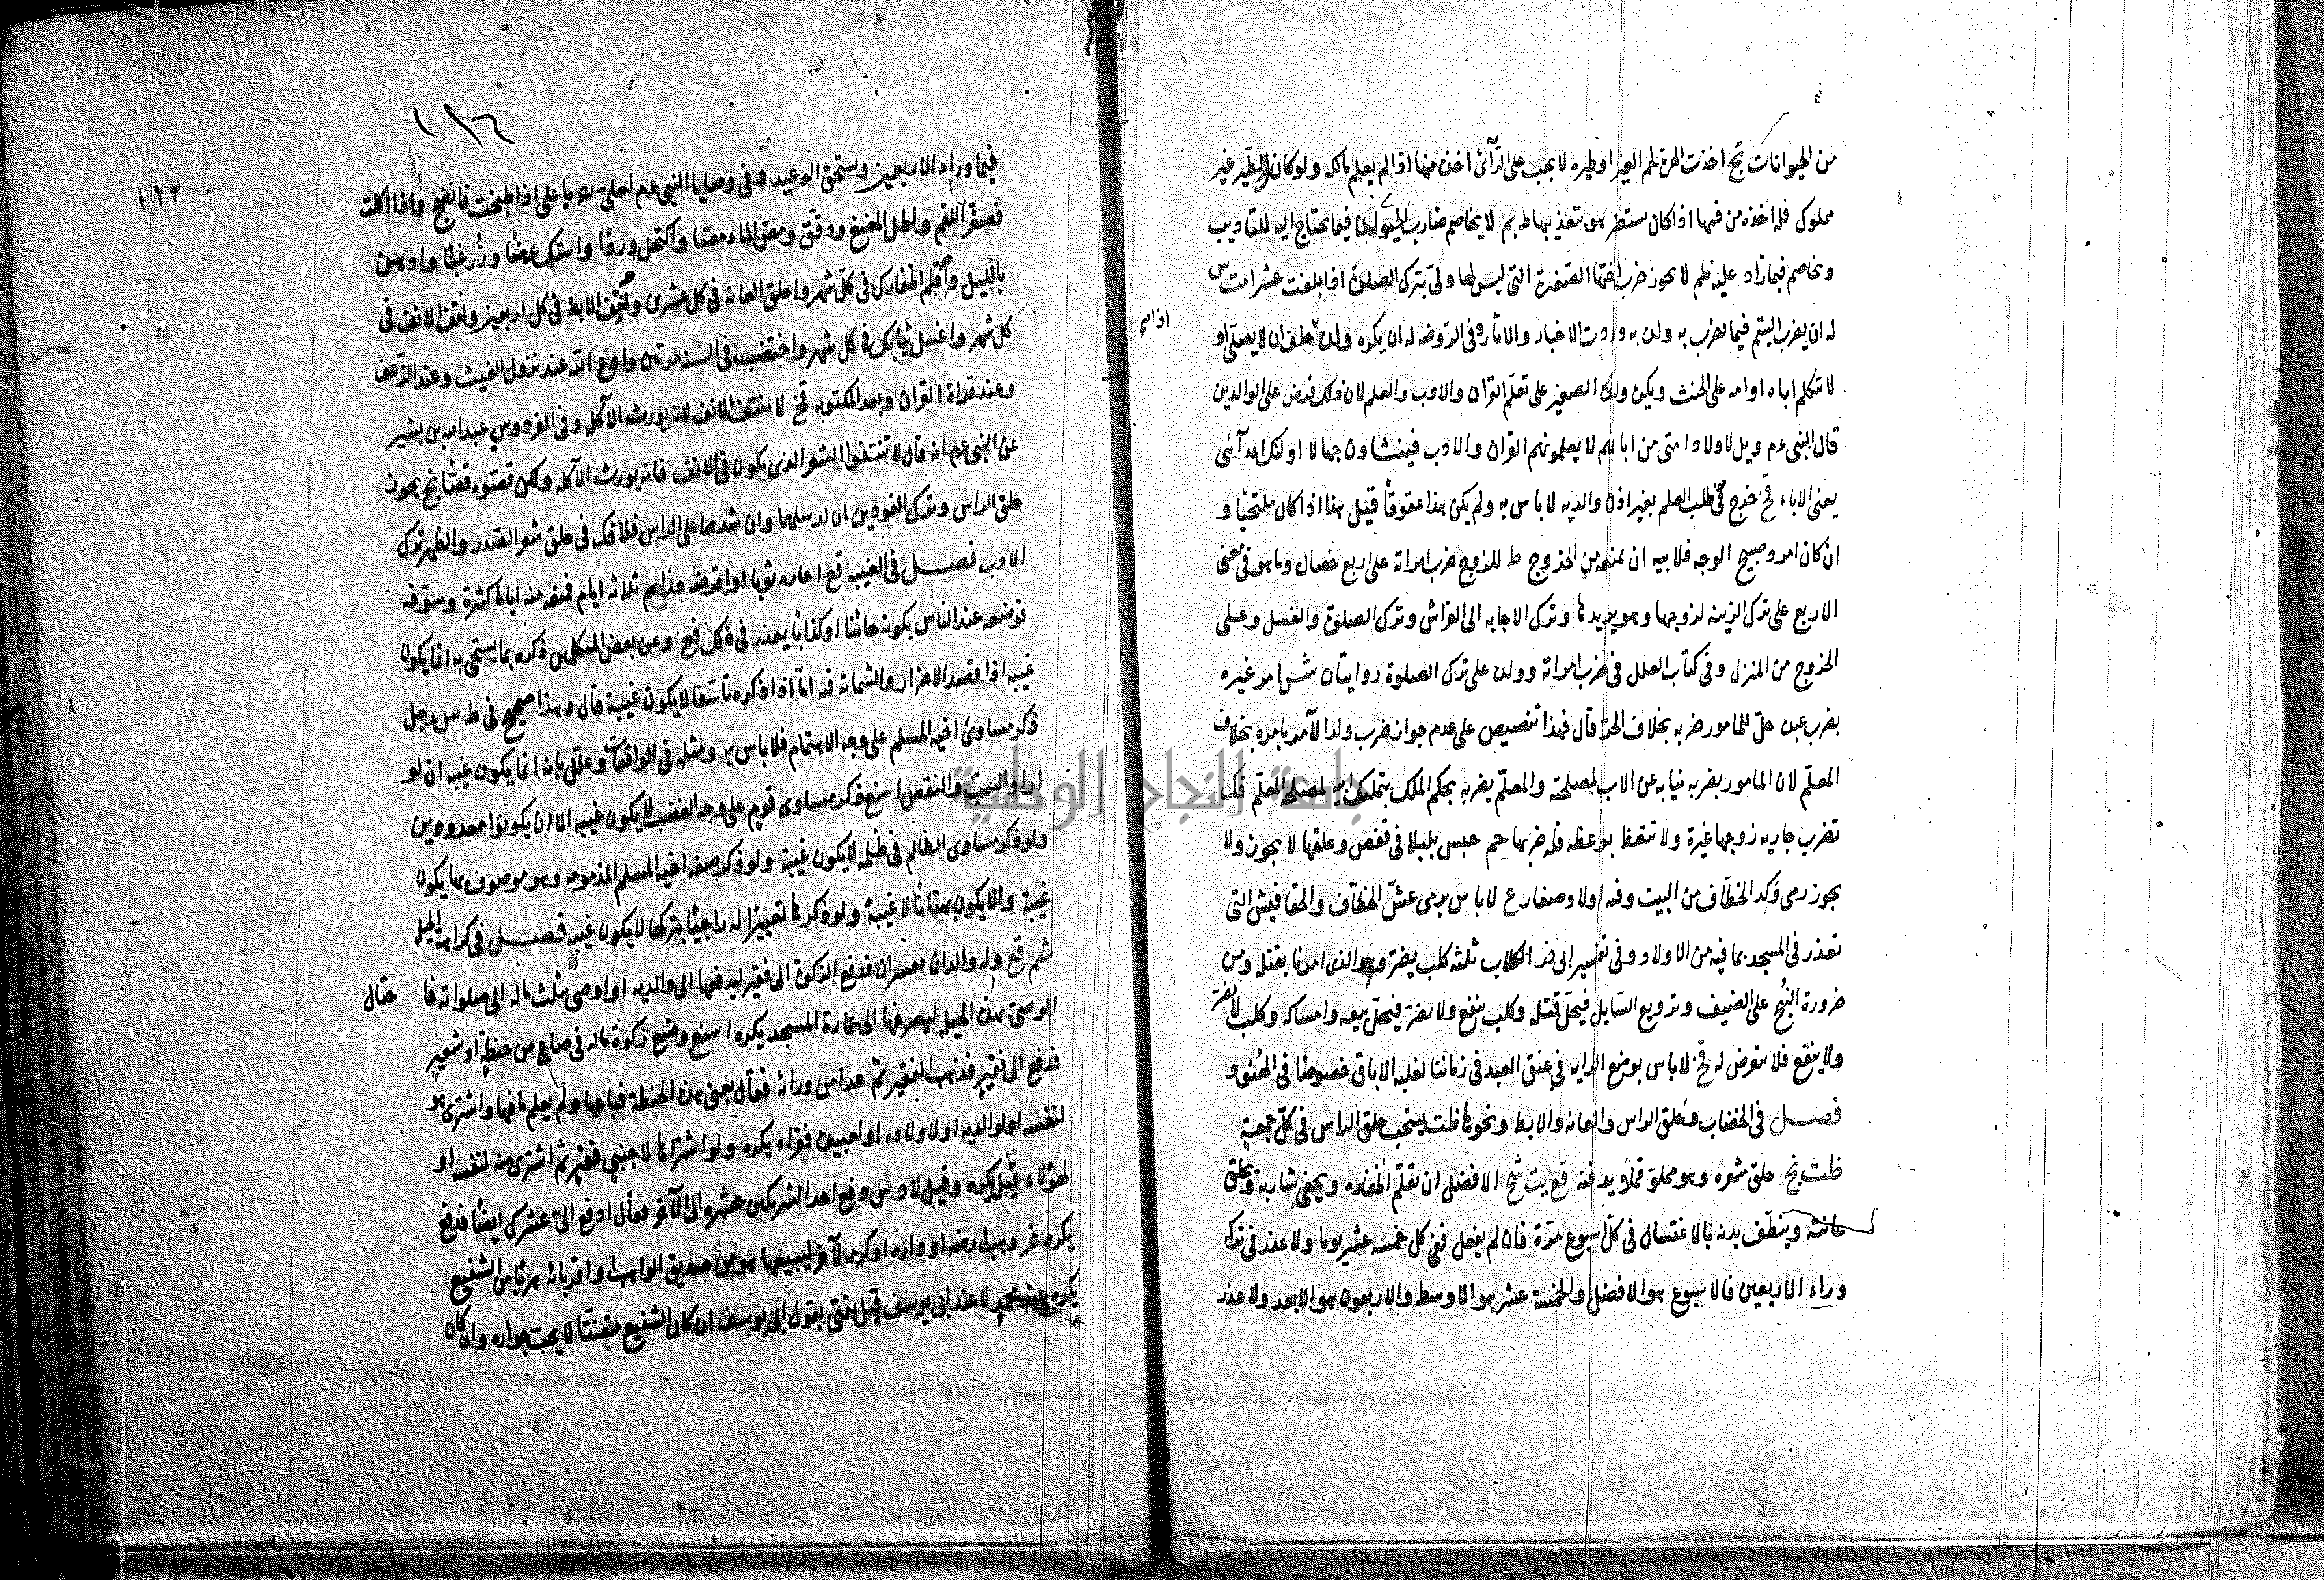 من الحيوانات بخ اخذت الهرة لحم الغير او طيره لا يجب على الرآئى اخذه منها اذا لم يعلم مالكه ولو كان الطير غير
مملوك فله اخذه من فمها اذا كان ستطر هو بتعذيبها ط بم لا يخاصم ضارب الحيوان فيما يحتاج اليه للتاديب
ويخاصم فيما زاد عليه ظم لا يجوز ضرب اختها الصغيرة التى ليس لها ولى بترك الصلوة اذا بلغت عشرا مت س
له ان يضرب اليتيم فيما يضرب به ولده به وردت الاخبار والاثار وفى الروضه له ان يكره ولده
اذا صح
لا تتكلم اباه او امه على الحنث ويكره ولده الصغير على تعلم القران والادب والعلم لان ذلك فرض على الوالدين
قال النبى عم ويل لاولاد امتى من ابائهم لا يعلمونهم القران والادب فينشاون جهالا اولئك اعدآئى
يعنى الاباء قخ خرج فى طلب العلم بغير اذن والديه لا باس به ولم يكن هذا عقوقا قيل هذا اذا كان ملتحيا و
ان كان امرد صبيح الوجه فلابيه ان يمنعه من الخروج ط للزوج ضرب امراته على اربع خصال وما هو فى معنى
الاربع على ترك الزينه لزوجها وهو يريدها وترك الاجابه الى الفراش وترك الصلوة والغسل وعلى
الخروج من المنزل وفى كتاب العلل فى ضرب امراته وولده على ترك الصلوة روايتان امر غيره
بضرب عبده حل للمامور ضربه بخلاف الحر قال فهذا تنصيص على عدم جواز ضرب ولد الآمر بامره بخلاف
المعلم لان المامور يضربه نيابه عن الاب لمصلحته والمعلم يضربه بحكم الملك بتمليك ابيه لمصلحه المعلم فك
تضرب جاريه زوجها غيرة ولا تتعظ بوعظه فله ضربها حم حبس بلبلا فى قفص وعلقها لا يجوز ولا
يجوز رمى وكر الخطاف من البيت وفيه اولاد صغار ع لا باس برمى عش الخطاف والخفافيش التى
تقذر فى المسجد بما فيه من الاولاد وفى تفسير ابى ذر الكلاب ثلثه كلب يضر وهو الذى امرنا بقتله ومن
ضرورة النبح على الضيف وترويع السايل فيحل قتله وكلب ينفع ولا يضر فيحل بيعه وامساكه وكلب لا يضر
ولا ينفع فلا نتعرض له قخ لا باس بوضع الرايه فى عنق العبد فى زماننا لغلبه الاباق خصوصا فى الهنود
فصل فى الخضاب وحلق الراس والعانه والابط ونحوها ظت يستحب حلق الراس فى كل جمعه
ظت بخ حلق شعره وهو محلوق قلاويد فنه قع يت شح الافضل ان تقلم اظفاره ويحفى شاربه ويحلق
عانته وينظف بدنه بالاغتسال فى كل اسبوع مرة فان لم يفعل ففى كل خمسه عشر يوما ولا عذر فى تركه
وراء الاربعين فالاسبوع هو الافضل والخمسة عشر هو الاوسط والاربعون هو الابعد ولا عذر
١١٦
١١٣
فيما وراء الاربعين ويستحق الوعيد وفى وصايا النبى عم لعلى رض يا على اذا طبخت فانضج واذا اكلت
فصغر اللقم واطل المضغ ودقق ومص الماء مصا واكتحل وترا واستك عرضا وزر غبا وادهن
بالليل وقلم اظفارك فى كل شهر واحلق العانه فى كل عشرين ونتف الابط فى كل اربعين ونتف الانف فى
كل شهر واغسل ثيابك فى كل شهر واختضب فى السنه مرتين وادع الله عند نزول الغيث وعند الزحف
وعند قراة القران وبعد المكتوبه قخ لا ينتف الانف لانه يورث الآكله وفى الفردوس عبد الله بن بشير
عن النبى عم انه قال لا تنتفوا الشعر الذى يكون فى الانف فانه يورث الآكله ولكن قصوه قصا بخ يجوز
حلق الراس وترك الفودين ان ارسلهما وان شدهما على الراس فلا فك فى حلق شعر الصدر والظهر ترك
الادب فصل فى الغيبه قع اعاره ثوبا او اقرضه دراهم ثلاثه ايام فمنعه منه اياما كثيرة وسوفه
فوضعه عند الناس بكونه خائنا او كذابا يعذر فى ذلك فع وعن بعض المتكلمين ذكره بما يستحى به انما يكون
غيبه اذا قصد الاضرار والشماته فيه اما اذا ذكره تاسفا لا يكون غيبة قال وهذا صحيح فى ط س رجل
ذكر مساوئ اخيه المسلم على وجه الاهتمام فلا باس به ومثله فى الواقعات وعلل بانه انما يكون غيبه ان لو
اراد السب والنقص اسنع ذكر مساوى قوم على وجه الغضب لا يكون غيبه الا ان يكونوا معدودين
ولو ذكر مساوى الظالم فى ظلمه لا يكون غيبة ولو ذكر صفه اخيه المسلم المذمومه وهو موصوف بها يكون
غيبة والا يكون بهتانا لا غيبة ولو ذكرها تعييرا له راجيا بتركها لا يكون غيبه فصل فى كراهة الحيل
شم قع وله والدان معسران فدفع الزكوة الى فقير ليدفعها الى والديه او اوصى بثلث ماله الى صلواته فا
حتال
الوصى بهذه الحيله ليصرفها الى عمارة المسجد يكره اسنع وضع زكوة ماله فى صاع من حنطة او شعير
فدفع الى فقير فذهب الفقير ثم عدا من ورائه فقال بعنى هذه الحنطة فباعها ولم يعلم ما فيها واشترى هو
لنفسه او لوالديه او لاولاده او لصبيين فقراء يكره ولو اشتراها لاجنبى فقير ثم اشترى منه لنفسه او
لهؤلاء قيل يكره وقيل لا دس دفع احد الشريكين عشره الى الآخر فقال ادفع الى عشرى ايضا فدفع
يكره غر وهب ارضه او داره او كرمه لآخر ليبيعها هو من صديق الواهب او اقربائه هربا من الشفيع
يكره عند محمد لا عند ابى يوسف قيل يفتى بقول ابى يوسف ان كان الشفيع متعنتا لا يحب جواره وان كان